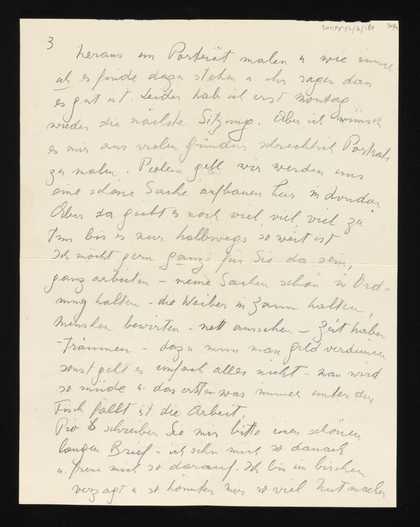 3
heraus ein Porträt malen u wie immer
ich es finde dazu stehen u ihr sagen dass
es gut ist. Leider hab ich erst Montag
wieder die nächste Sitzung. Aber ich wünsch
es mir aus vielen Gründen Porträts
zu malen. gell wir werden uns
eine schöne Sache aufbauen hier in London
Aber da giebt es noch viel viel viel zu
tun bis es nur halbwegs so weit ist
Ich möcht gern ganz für Sie da sein,
ganz arbeiten – meine Sachen schön in Ord-
nung halten – die Weiber in Zaum halten,
Menschen bewirten – nett aussehen – Zeit haben
– Träumen – dazu muss man Geld verdienen
sonst geht es einfach alles nicht – man wird
so müde u. das erste was immer unter den
Tisch fällt ist die Arbeit.
schreiben Sie mir bitte einen schönen
langen Brief – ich sehn mich so danach
u. freue mich so darauf. Ich bin ein bischen
verzagt u so könnten wir so viel Mut machen